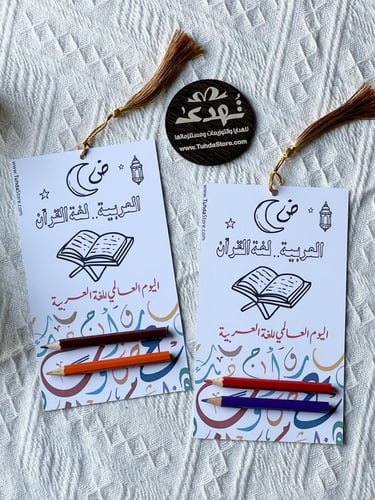 تهدى
للهدايا والتوزيعات ومستلزماتها
www.TuhdaStore.com
www.TuhdaStore.com
ض
العربية.. لغة القرآن
اليوم العالمي للغة العربية
www.TuhdaStore.com
ض
العربية.. لغة القرآن
اليوم العالمي للغة العربية